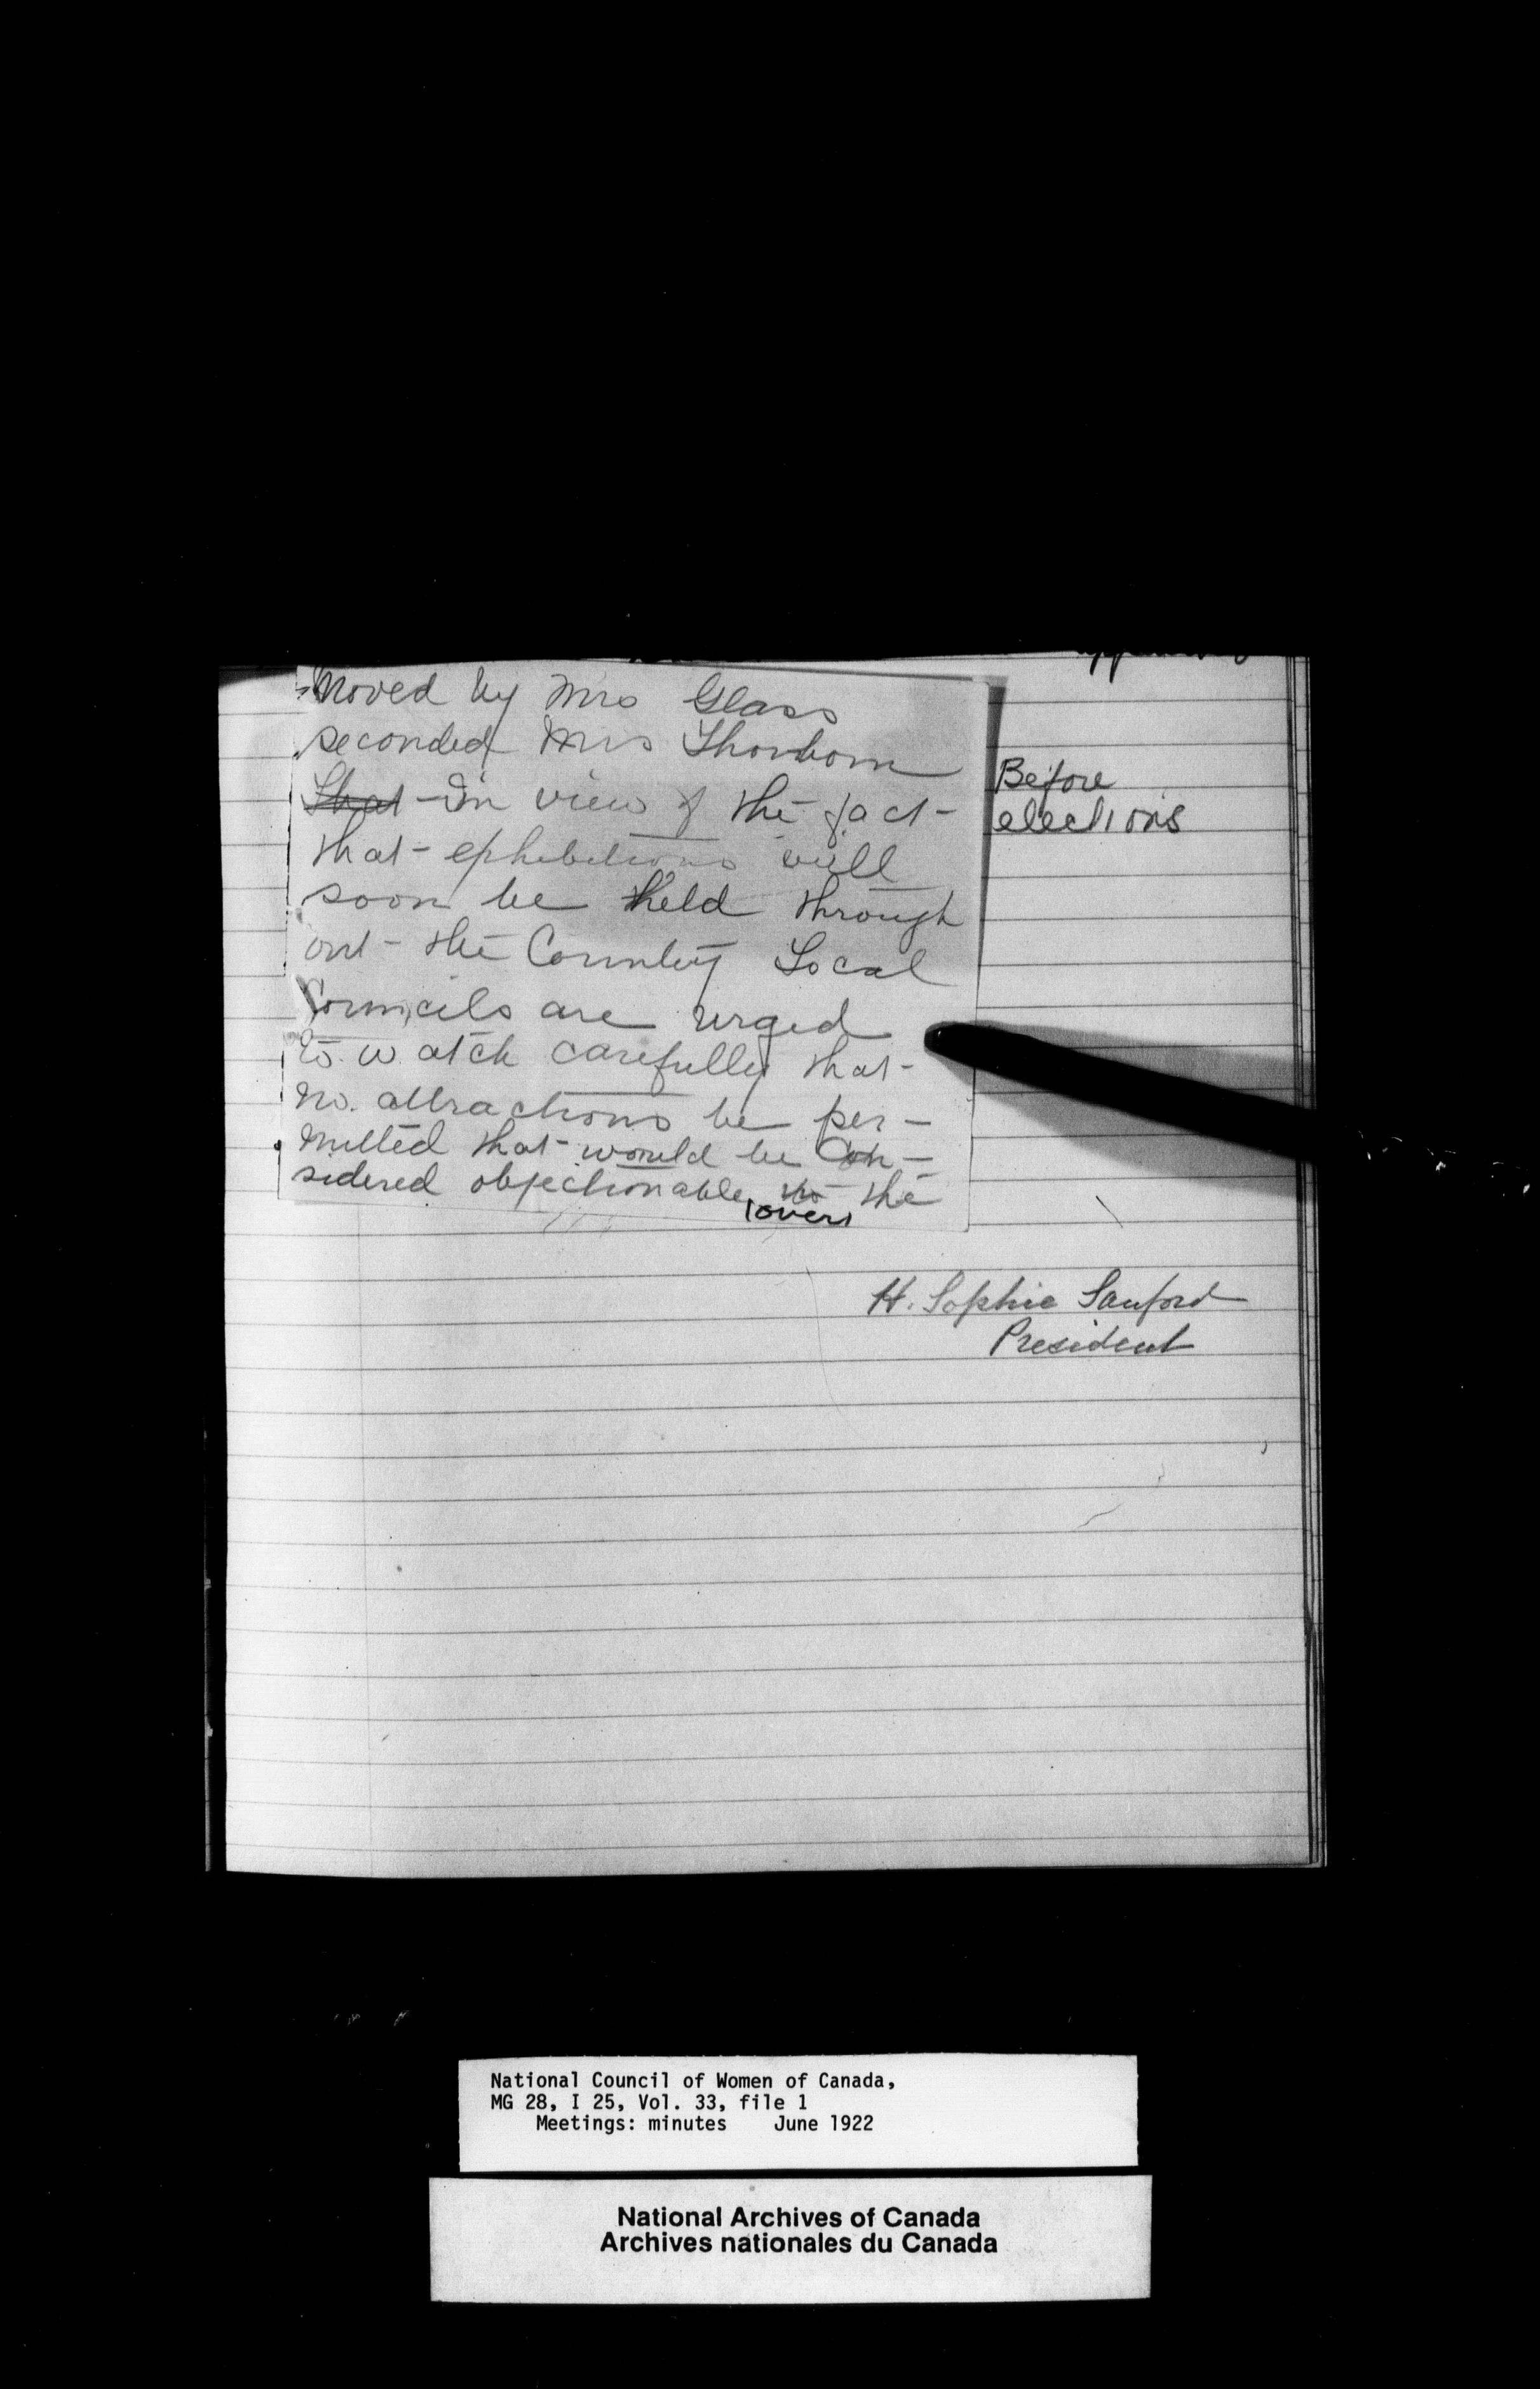 Moved by Mrs Glass
seconded Mrs Thorborn
That - In view of the fact -
that - exhibitions will
soon be held through
out - the Country Local
Councils are urged
to watch carefully that -
no. attractions be per -
mitted that would be Con -
sidered objectionable to the
(over)
Before
elections
H. Sophie Sanford
President
National Council of Women of Canada,
MG 28, I 25, Vol. 33, file 1
Meetings: minutes June 1922
National Archives of Canada
Archives nationales du Canada